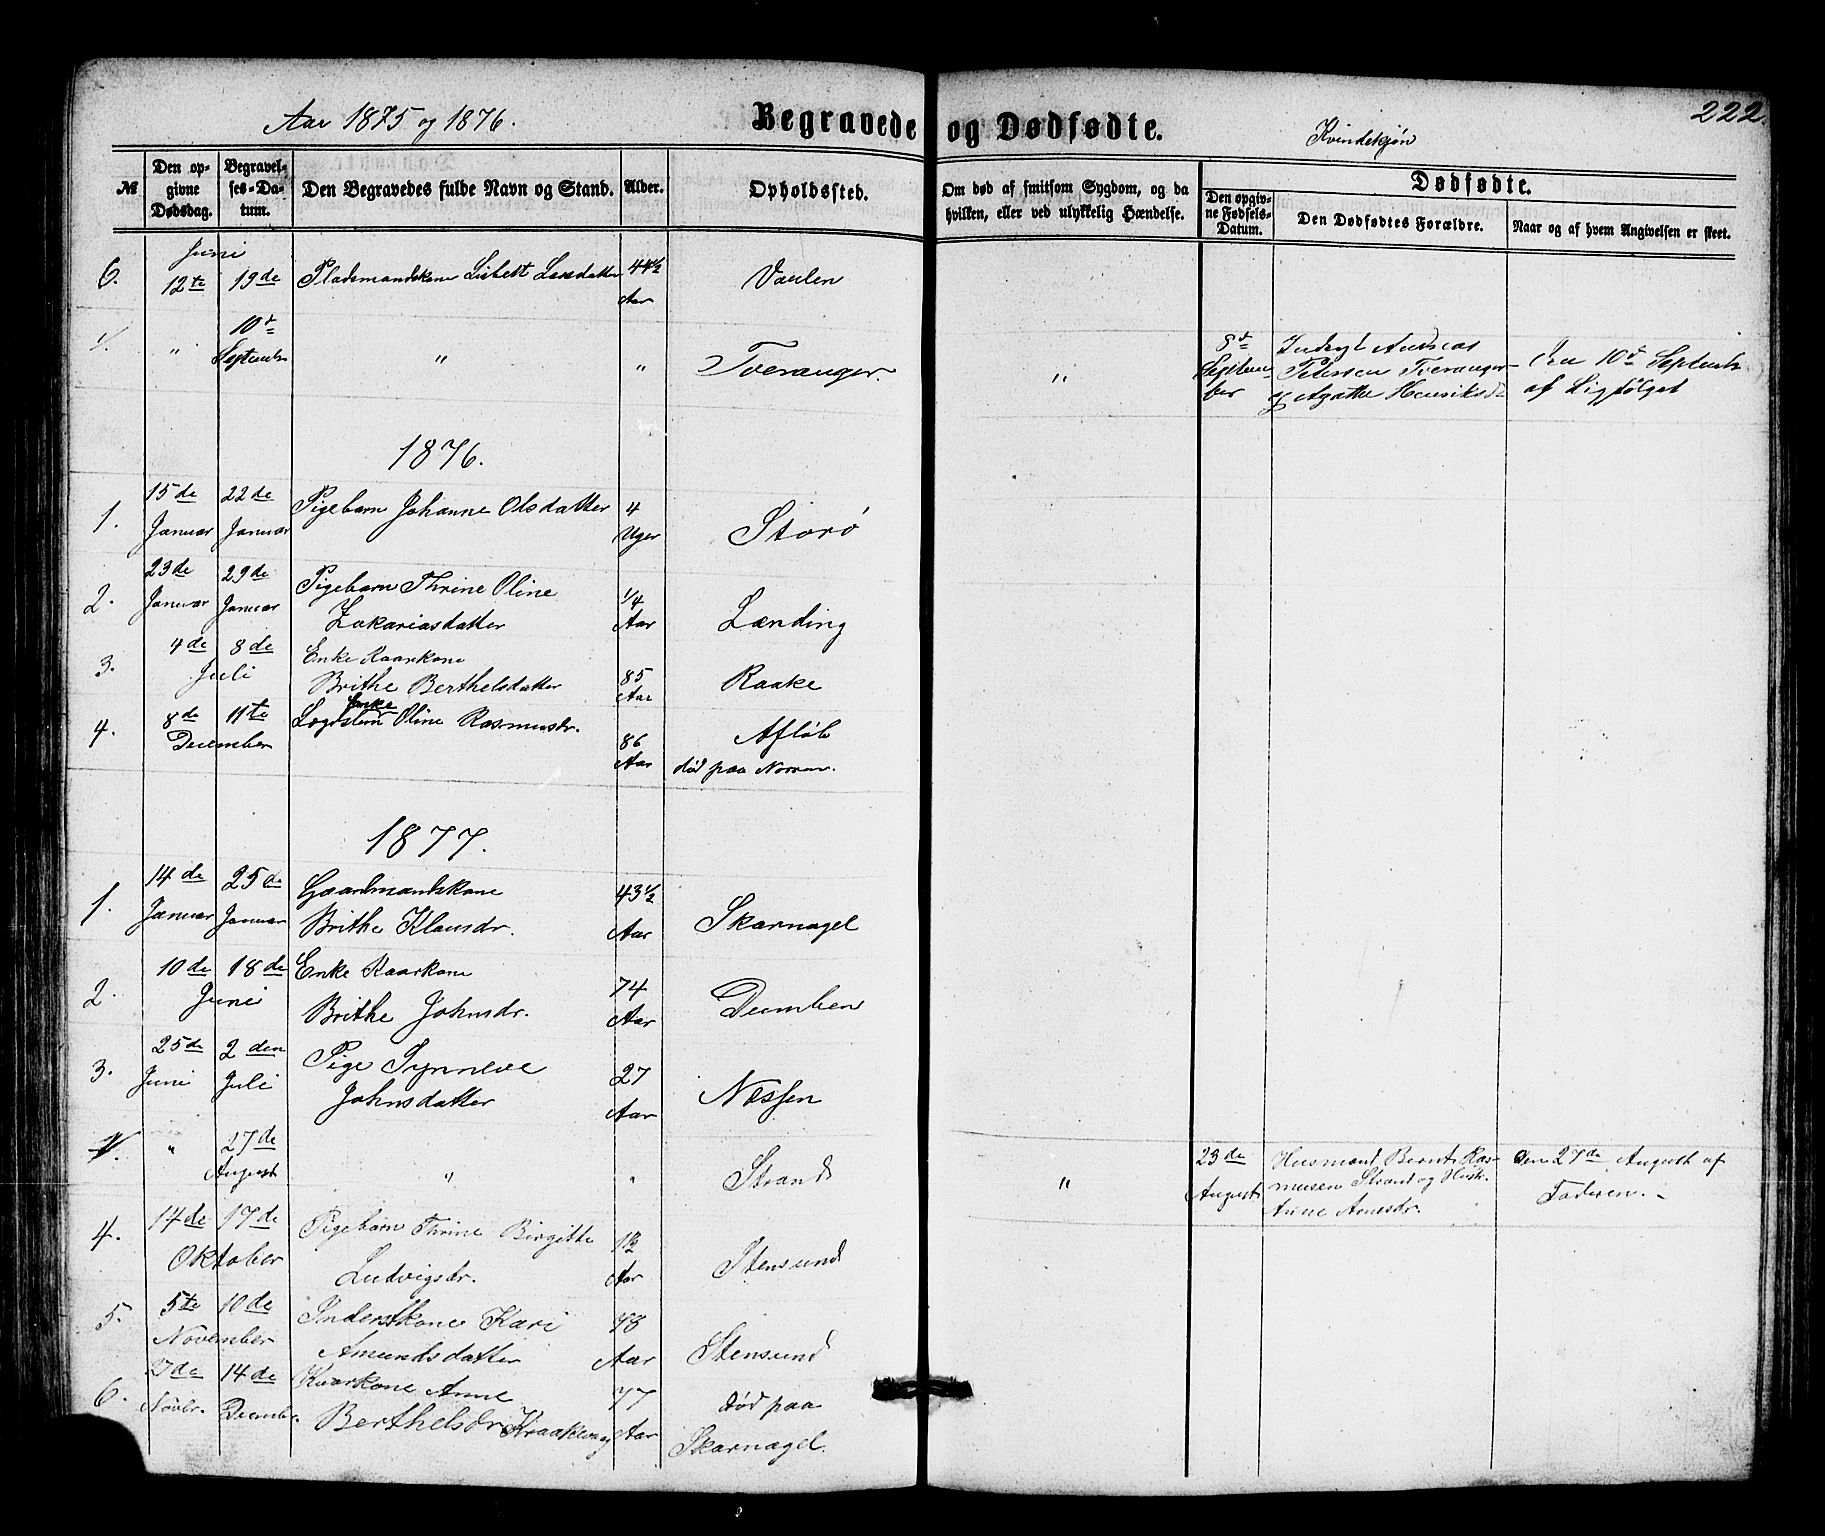 Aar 1875 og 1876.
Begravede og Dødfødte.
Kvindekjøn
222.
№
Den opgivne Dødsdag.
Begravelses-Datum.
Den Begravedes fulde Navn og Stand.
Alder.
Opholdssted.
Om død af smitsom Sygdom, og da hvilken, eller ved ulykkelig Hændelse.
Dødfødte.
Den opgivne Fødsels-Datum.
Den Dødfødtes Forældre.
Naar og af hvem Angivelsen er skeet.
Juni
6. 12te 19de Pladsmandskone Lisbett Larsdatter 44½ Aar Vaulen
1. " 10d September " " Tveranger. " 8d September
Andreas
Petersen Tveranger
og Agathe Henriksd
Den 10d Septemb
af Ligfølget
1876.
1. 15de Januar 22de Januar Pigebarn Johanne Olsdatter 4 Uger Storø
2. 23de Januar 29de Januar Pigebarn Thrine Oline
Zakariasdatter ¼ Aar Lænding
3. 4de 8de Juli Enke Kaarkone
Brithe Berthelsdatter 85 Aar Raake
4. 8de 11te December Lægdslem Enke Oline Rasmusdr. 86 Aar Afløb
død paa
1877.
1. 14de Januar 25de Januar Gaardmandskone
Brithe Klausdr. 43½ Aar Skarnagel
2. 10de 18de Juni Enke Kaarkone
Brithe Johnsdr. 74 Aar
3. 25de Juni 2den Juli Pige Synneve
Johnsdatter 27 Aar Næssen
1. " 27de August " " Strand " 23de August
Husmand Bernt Ras-
musen Strand og Hustr.
Anne Arnesdr.
Den 27de August af
Faderen.
4. 14de 17de Oktober Pigebarn Thrine Birgitte
Ludvigsdr. Aar Stensund
5. 5te 10de November Kari
Amundsdatter Aar Stensund
6. Novbr. 14de December Kaarkone Anne
Berthelsdr Kraakevaag 77 Aar død paa
Skarnagel.